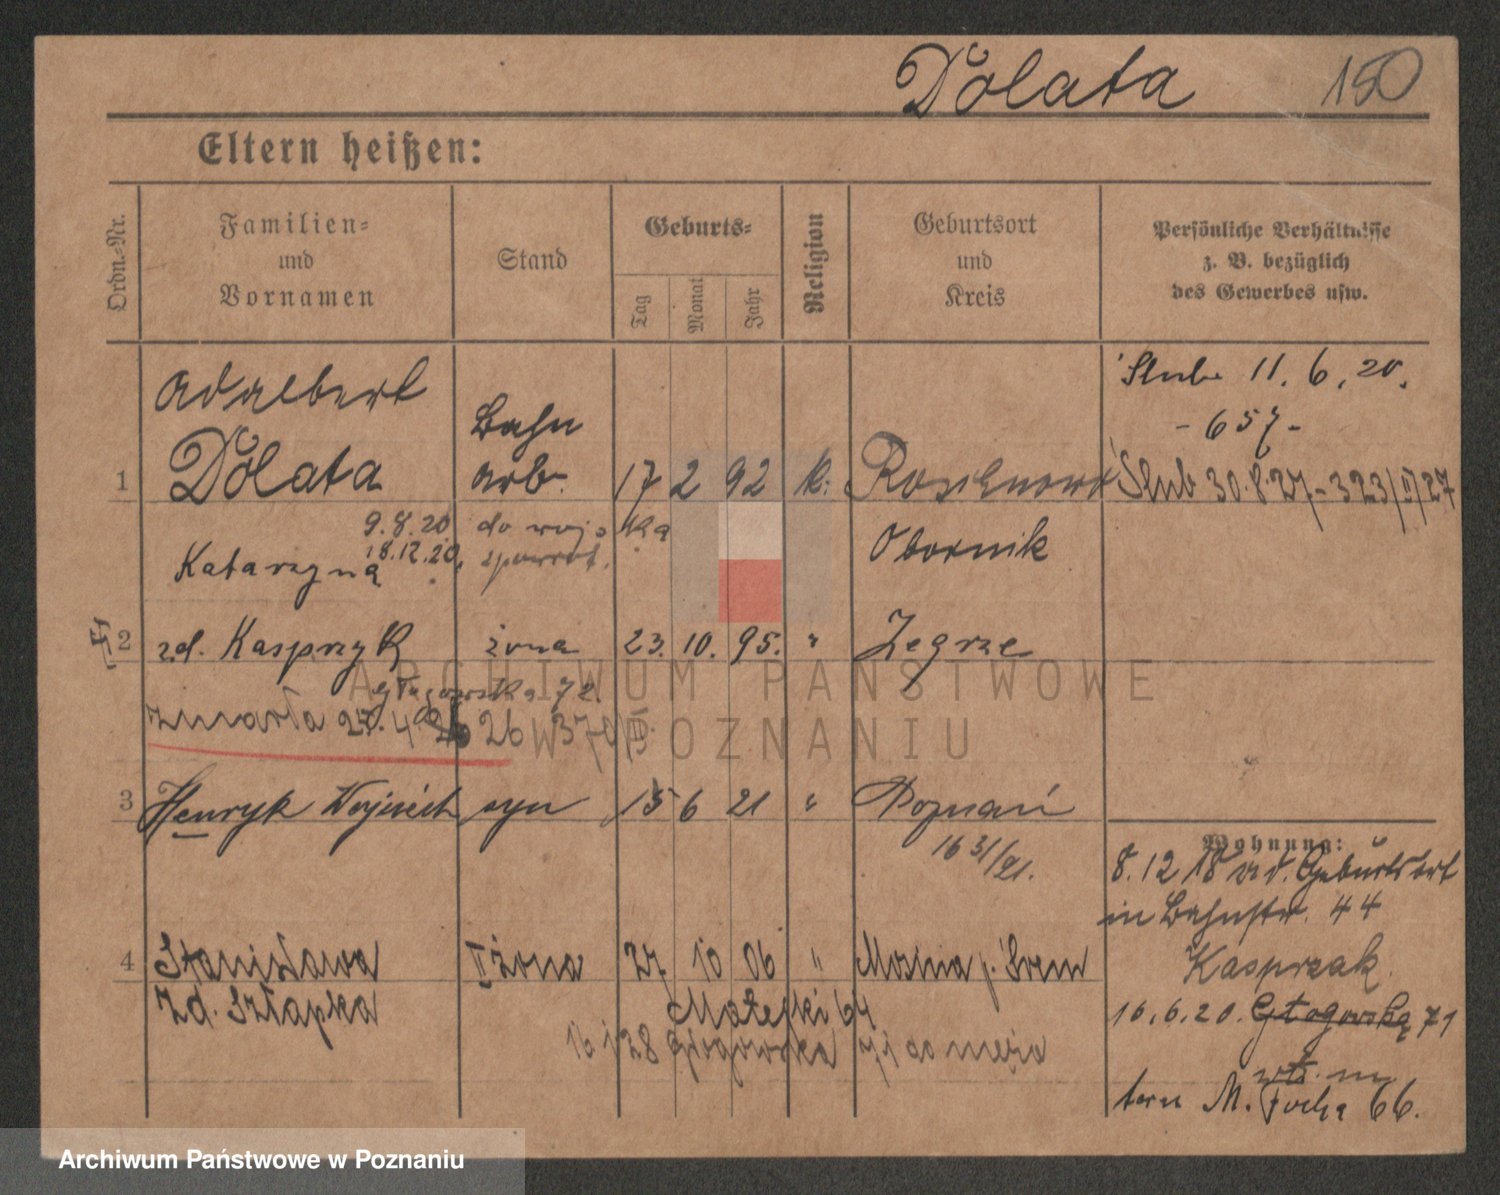 Dolata 150
Eltern heißen:
Ordn.-Nr.
Familien-
und
Vornamen
Stand
Geburts-
Tag
Monat
Jahr
Religion
Geburtsort
und
Kreis
Persönliche Verhältnisse
z. B. bezüglich
des Gewerbes usw.
Adalbert
Ślub 11.6.20.
- 657 -
Bahn
1 Dolata arb. 17 2 92 k. Ślub 30.8.27 - 323/II/27
9.8.20 do wojska
18.12.20,
Katarzyna
Obornik
2 zd. Kasprzyk żona 23. 10. 95. " Zegrze
Głogowska 72.
zmarła 26 370
3 Henryk Wojciech syn 15 6 21 " Poznań
Wohnung:
8.12.18 Geburtsort
in Bahnstr. 44
4 Stanisława II żona 27 10 06 " Mosina p. Śrem
Kasprzak
zd. Szłapka
Matejki 64
16.6.20. Głogowską 71
28 Głogowska 71 do męża
M. Focha 66.
ARCHIWUM PAŃSTWOWE
W POZNANIU
Archiwum Państwowe w Poznaniu